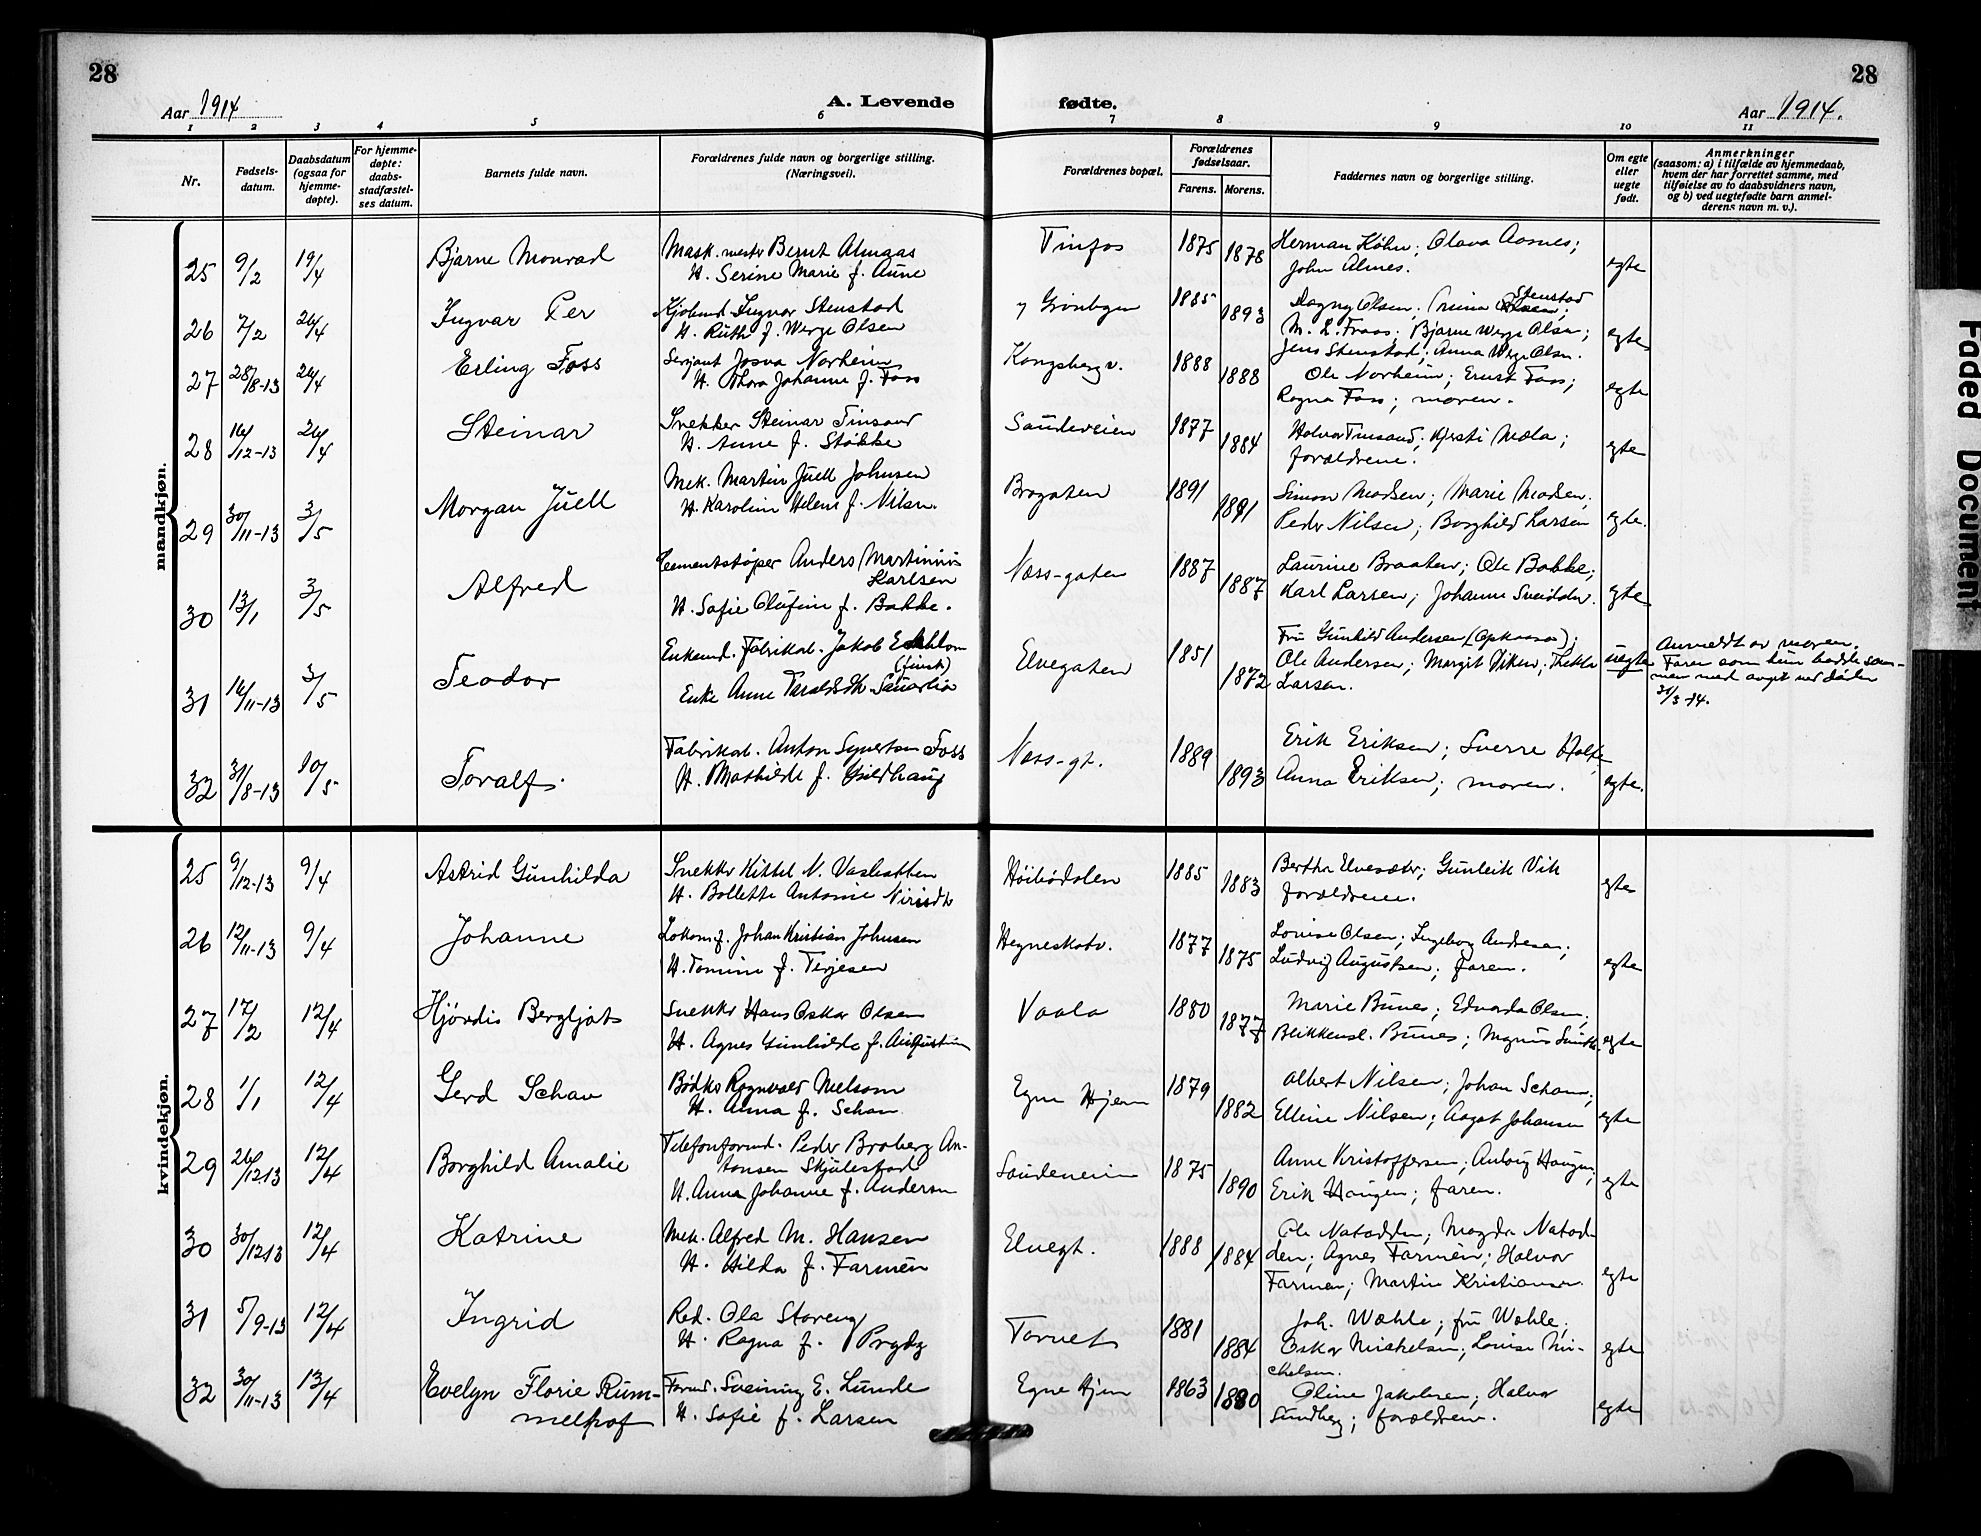 28
28
Aar 1914
A. Levende
fødte.
Aar 1914.
1 2 3 4 5 6 7 8 9 10 11
Nr.
Fødsels-
datum.
Daabsdatum
(ogsaa for
hjemme-
døpte).
For hjemme-
døpte:
daabs-
stadfæstel-
ses datum.
Barnets fulde navn.
Forældrenes fulde navn og borgerlige stilling.
(Næringsvei).
Forældrenes bopæl.
Forældrenes
fødselsaar.
Farens. Morens.
Faddernes navn og borgerlige stilling.
Om egte
eller
uegte
født.
Anmerkninger
(saasom: a) i tilfælde av hjemmedaab,
hvem der har forrettet samme, med
tilføielse av to daabsvidners navn,
og b) ved uegtefødte barn anmel-
derens navn m. v.).
mandkjøn.
25 9/2 19/4 Bjarne Monrad
Mask.mester Bernt Almaas
H. Serine Marie f. Aune
Tinfos 1875 1878
Herman Köhn; Olava Aasnes;
John Almes.
egte
26 7/2 26/4 Ingvar Per
Ingvar Stenstad
H. Ruth f. Werge Olsen
Grönbyen 1885 1893
Dagny Olsen; Stenstad
M. L. Fraas; Bjarne Werge Olsen;
Jens Stenstad; Anna Werge Olsen.
egte
27 28/8-13 26/4 Erling Foss
Serjant Josva Norheim
H. Thora Johanne f. Foss
Kongsbergv. 1888 1888
Ole Norheim; Ernst Foss;
Ragna Foss; moren.
egte
28 16/12-13 26/4 Steinar
Snekker Steinar Tinsand
H. Anne f. Støkke
Saudeveien 1877 1884
Halvor Tinsand; Kjersti Mæla;
forældrene.
egte
29 30/11-13 3/5 Morgan Juell
Mek. Martin Juell Johnsen
H. Karoline Helene f. Nilsen.
Brogaten 1891 1891
Simon Madsen; Marie Madsen;
Peder Nilsen; Borghild Larsen
egte.
30 13/1 3/5 Alfred
Cementstøper Anders Martinius
Karlsen
H. Sofie Olufine f. Bakke.
Næss-gaten 1887 1887
Laurine Braaten; Ole Bakke;
Karl Larsen; Johanne
egte
31 16/11-13 3/5 Teodor
Enkemd. Fabrikarb. Jakob Ekblom
(finsk)
Enke Anne Taraldsdtr. Sauarlia
Elvegaten 1851 1872
Fru Gunhild Andersen (Opkaasa);
Ole Andersen; Margit Viken; Thekla
Larsen.
uegte
Anmeldt av moren.
Faren som hun bodde sam-
men med avgik ved døden
31/3-14.
32 31/8-13 10/5 Toralf.
Fabrikarb. Anton Syvertsen Foss
H. Mathilde f. Gildhaug
Næss-gt. 1889 1893
Erik Eriksen; Sverre Holte,
Anna Eriksen; moren.
egte.
kvindekjøn.
25 9/12-13 9/4 Astrid Gunhilda
Snekker Kittel N. Vasbotten
H. Bollette Antonie
Höibödalen 1885 1883
Bertha Elvesæter; Gunleik Vik
forældrene.
egte
26 12/11-13 9/4 Johanne
Lokomf. Johan Kristian Johnsen
H. Tomine f. Terjesen
Hegneskotv. 1877 1875
Louise Olsen; Ingeborg Andresen;
Ludvig Augustsen; faren.
egte
27 17/2 12/4 Hjørdis Bergljot
Snekker Hans Oskar Olsen
H. Agnes Gunhilde f. Augustin
Vaala 1880 1877
Marie Bunes; Edvarda Olsen;
Blikkensl. Bunes; Magnus
egte
28 1/1 12/4 Gerd Schau
Bødker Ragnvald Nielsen
H. Anna f. Schau.
Egne Hjem 1879 1882
Albert Nilsen; Johan Schau;
Elline Nilsen; Aagot Johansen
egte
29 26/12 13 12/4 Borghild Amalie
Telefonformd. Peder Broberg An-
tonsen Skjulestad
H. Anna Johanne f. Andersen
Saudeveien 1875 1890
Anne Kristoffersen; Haugen;
Erik Haugen; faren.
egte
30 30/12 13 12/4 Katrine
Mek. Alfred M. Hansen
H. Hilda f. Farmen
Elvegt. 1888 1884
Ole Notodden; Magda Notod-
den; Agnes Farmen; Halvor
Farmen; Martin Kristiansen
egte
31 5/9-13 12/4 Ingrid
Red. Ola Storeng
H. Ragna f. Prydz
Torvet 1881 1884
Joh. Wæhle; fru Wæhle;
Oskar Michelsen; Louise Mi-
chelsen.
egte
32 30/11-13 13/4 Evelyn Florie Rum-
melhof
Formd. Sveinung E. Lunde
H. Sofie f. Larsen
Egne Hjem 1863 1880
Oline Jakobsen; Halvor
Sundberg; forældrene.
egte
Faded Document